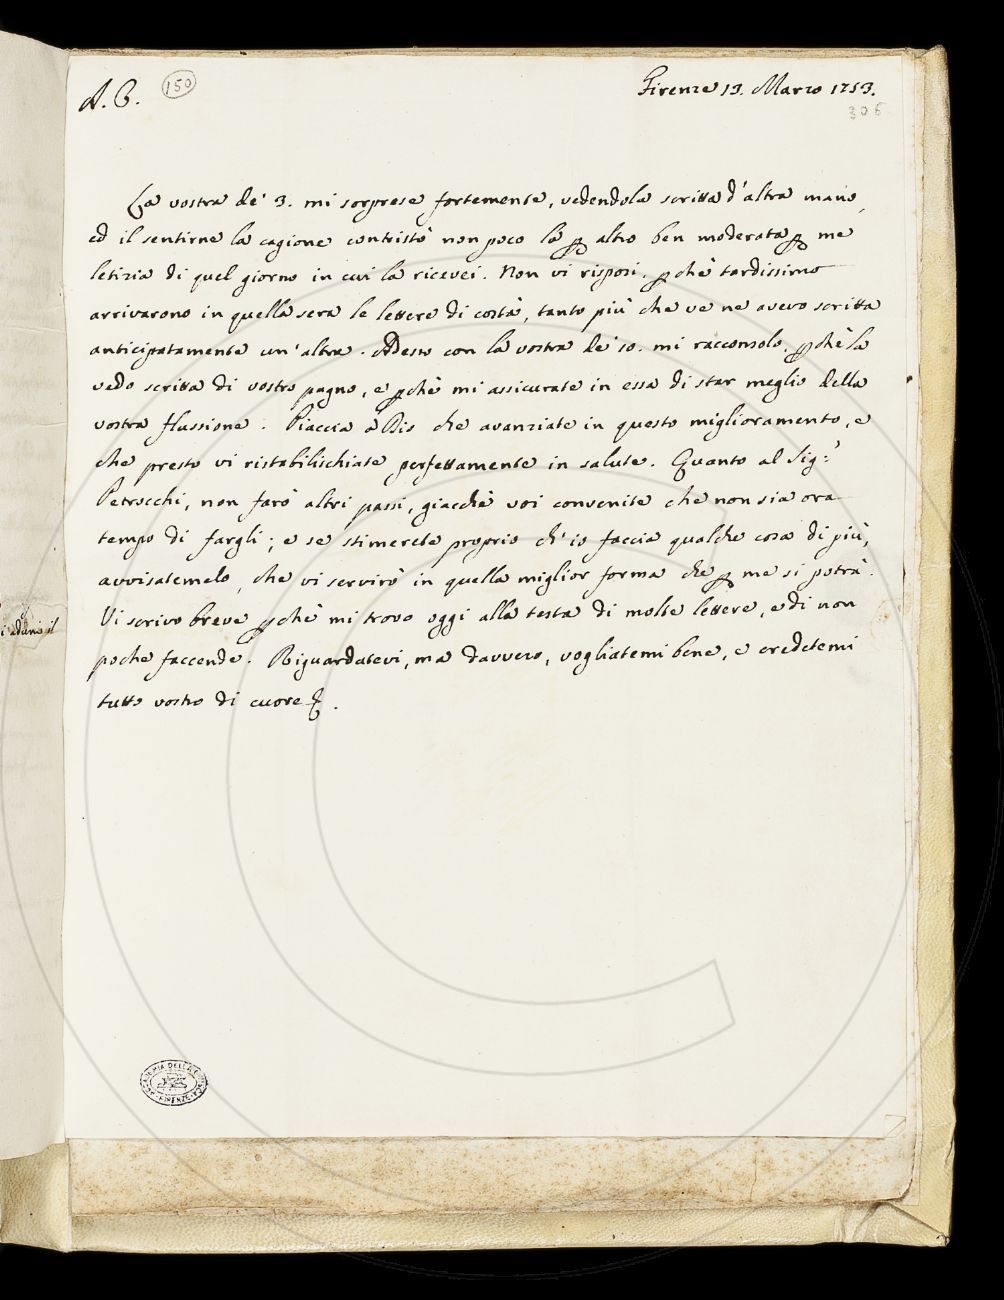 A. C. 150 Firenze 13. Marzo 1753.
306
La vostra de' 3. mi sorprese fortemente, vedendola scritta d'altra mano,
ed il sentirne la cagione contristò non poco la ꝑ altro ben moderata ꝑ me
letizia di quel giorno in cui la ricevei. Non vi risposi, ꝑchè tardissimo
arrivarono in quella sera le lettere di costà, tanto più che ve ne avevo scritta
anticipatamente un'altra. Adesso con la vostra de' 10. mi racconsolo, ꝑchè la
vedo scritta di vostro pugno, e ꝑchè mi assicurate in essa di star meglio della
vostra flussione. Piaccia a Dio che avanziate in questo miglioramento, e
che presto vi ristabilischiate perfettamente in salute. Quanto al Sig.r
Petrocchi, non farò altri passi, giacchè voi convenite che non sia ora
tempo di fargli; e se stimerete proprio ch'io faccia qualche cosa di più,
avvisatemelo, che vi servirò in quella miglior forma che ꝑ me si potrà.
Vi scrivo breve ꝑchè mi trovo oggi alla testa di molte lettere, e di non
poche faccende. Riguardatevi, ma davvero, vogliatemi bene, e credetemi
tutto vostro di cuore
ACCADEMIA DELLA CRUSCA · FIRENZE ·